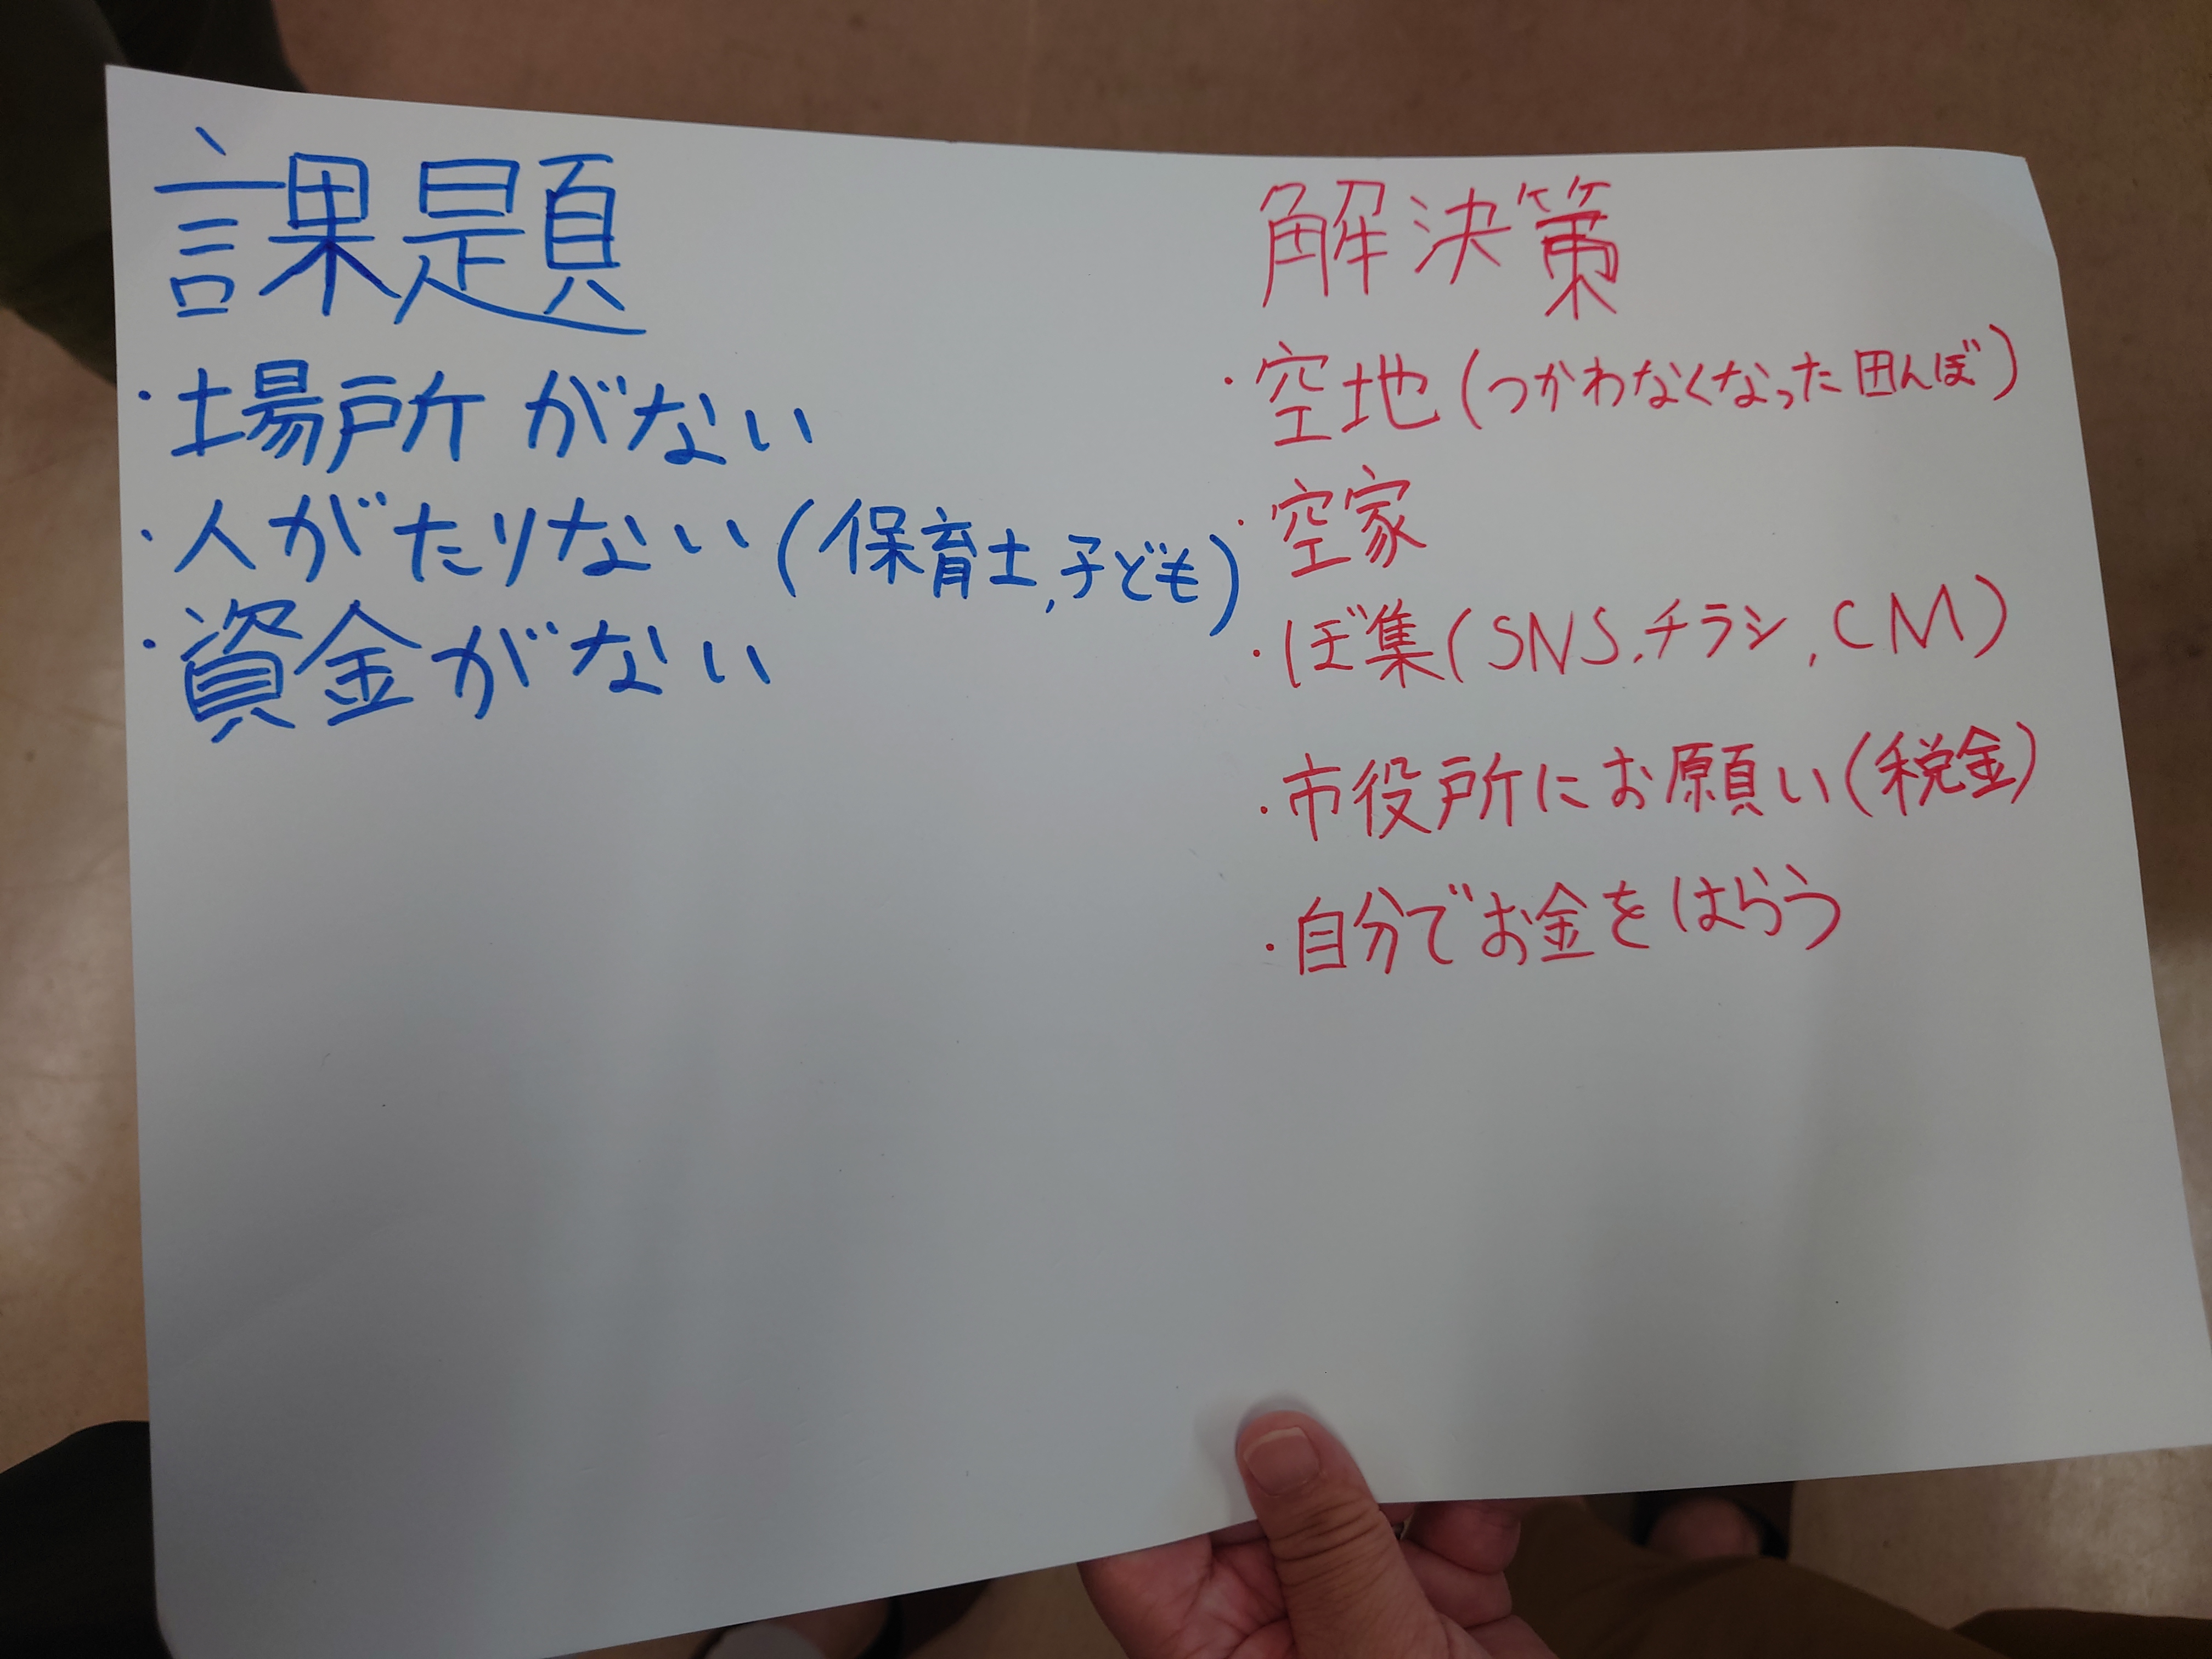 課題
・場所がない
・人がたりない(保育士,子ども)
・資金がない
解決策
・空地(つかわなくなった田んぼ)
・空家
・ぼ集(SNS,チラシ,CM)
・市役所にお願い(税金)
・自分でお金をはらう